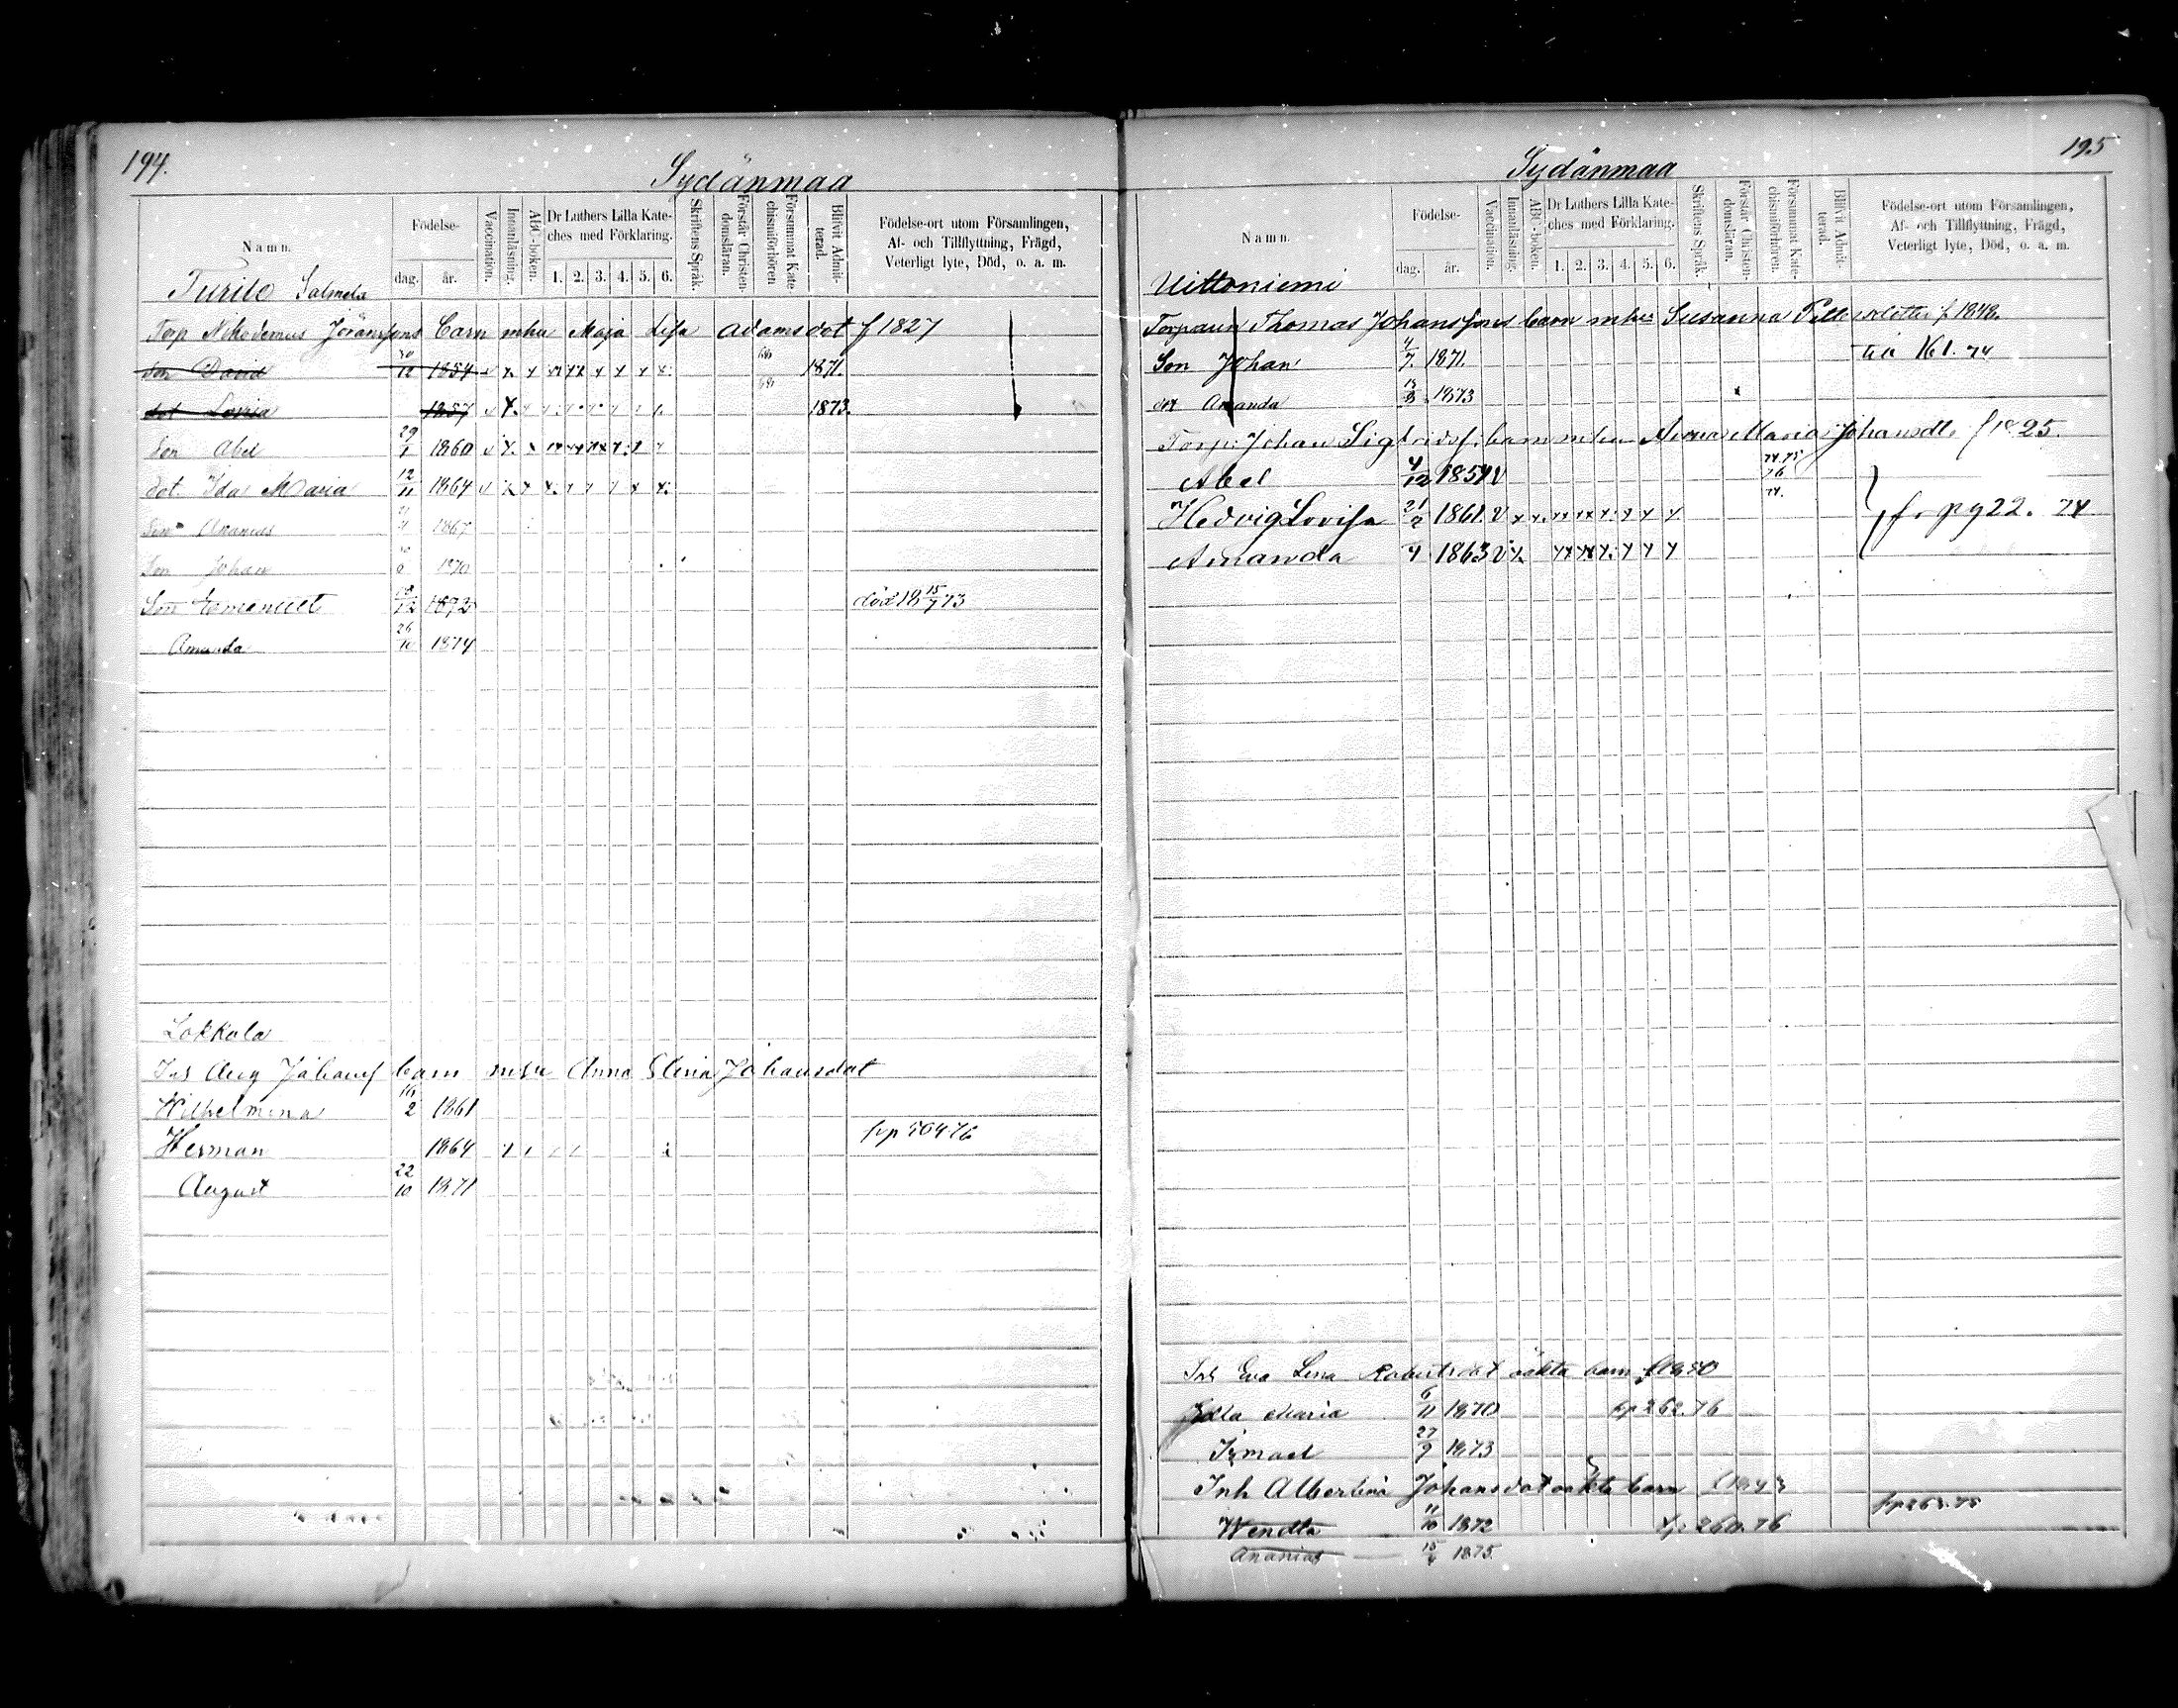 194.
Sydänmaa
Namn.
Födelse-
dag. år.
Vaccination.
Innanläsning.
ABC-boken.
Dr Luthers Lilla Kate-
ches med Förklaring.
1. 2. 3. 4. 5. 6.
Skriftens Språk.
Förstår Christen-
domsläran.
Försummat Kate
chismiförhören
Blifvit Admit-
terad.
Födelse-ort utom Församlingen,
Af- och Tillflyttning, Frägd,
Veterligt lyte, Död, o. a. m.
Salmela
Torp Nikodemus Jöranssons barn mhu Maja Lisa Adamsdot f 1827
Son David 30/12 1854 1871.
dot Lovisa 1857 1873.
Son Abel 1860
dot. Ida Maria 12/11 1864
Son Ananias 1867
Son Johan 1870
Son Emanuel 1872 död 18 15/7 73
Amanda 26/10 1874
Lokkola
Inh Aug Johans barn mhu Anna Johansdot
Wilhelmina 16/2 1861
Herman 1864
August 22/10 1871
195
Sydänmaa
Namn.
Födelse-
dag. år.
Vaccination.
Innanläsning.
ABC-boken.
Dr Luthers Lilla Kate-
ches med Förklaring.
1. 2. 3. 4. 5. 6.
Skriftens Språk.
Förstår Christen-
domsläran.
Försummat Kate-
chismiförhören.
Blifvit Admit-
terad.
Födelse-ort utom Församlingen,
Af- och Tillflyttning, Frägd,
Veterligt lyte, Död, o. a. m.
Uittoniemi
Torparen Thomas Johanssons barn mhu Susanna f 1848.
Son Johan 4/7. 1871. 161. 74
dot Amanda 1873
Torp. Johan Sigfridss. barn mhu Anna Maria Johansdt. f 1825.
Abel 4/12 1857 74.75 76
Hedvig Lovisa 21/2 1861. 74. fr. pg 22. 74
Amanda 4 1863
Inh Eva Lena Robertsdot oäkta barn f 1850
Edla Maria 6/11 1870 262.76
Ismael 27/9 1873
Inh Albertina Johansdot oäkta barn
Wendla 11/10 1872
Ananias 1875.